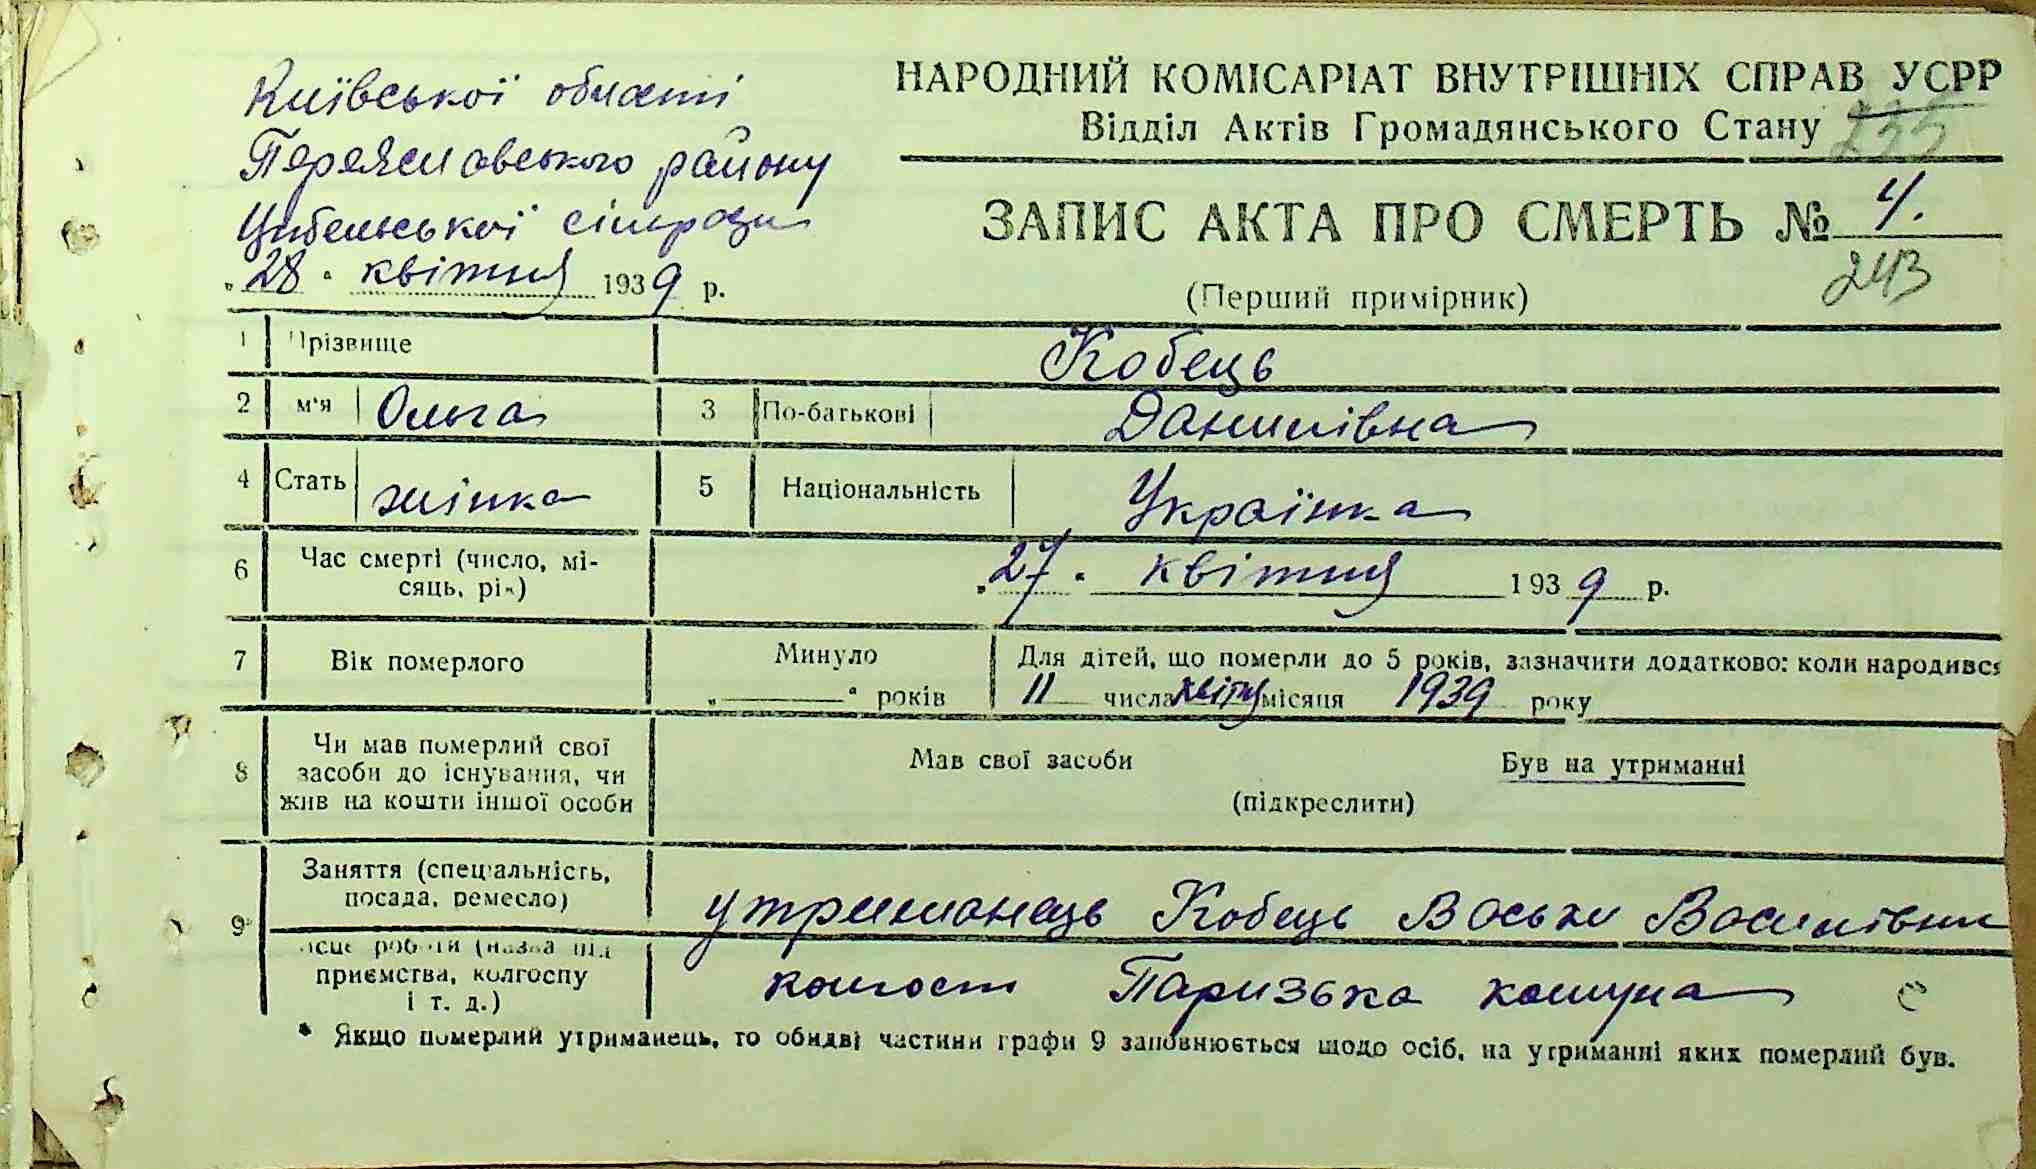 Київської області
Переяславського району
Цибельської сільради
„28“ квітня 1939 р.
НАРОДНИЙ КОМІСАРІАТ ВНУТРІШНІХ СПРАВ УСРР
Відділ Актів Громадянського Стану 235
ЗАПИС АКТА ПРО СМЕРТЬ № 4.
(Перший примірник) 243
1 Прізвище Кобець
2 м'я Ольга 3 По-батькові Данилівна
4 Стать жінка 5 Національність Українка
6 Час смерті (число, мі-
сяць, рік) „27“ квітня 1939 р.
7 Вік померлого Минуло „ “ років
Для дітей, що померли до 5 років, зазначити додатково: коли народився
11 числа квітня місяця 1939 року
8 Чи мав померлий свої
засоби до існування, чи
жив на кошти іншої особи
Мав свої засоби Був на утриманні
(підкреслити)
9* Заняття (спеціальність,
посада, ремесло)
утриманець Кобець Воськи Василівни
місце роботи (назва під
приємства, колгоспу
і т. д.)
колгосп Паризька комуна
* Якщо померлий утриманець, то обидві частини графи 9 заповнюється щодо осіб, на утриманні яких померлий був.